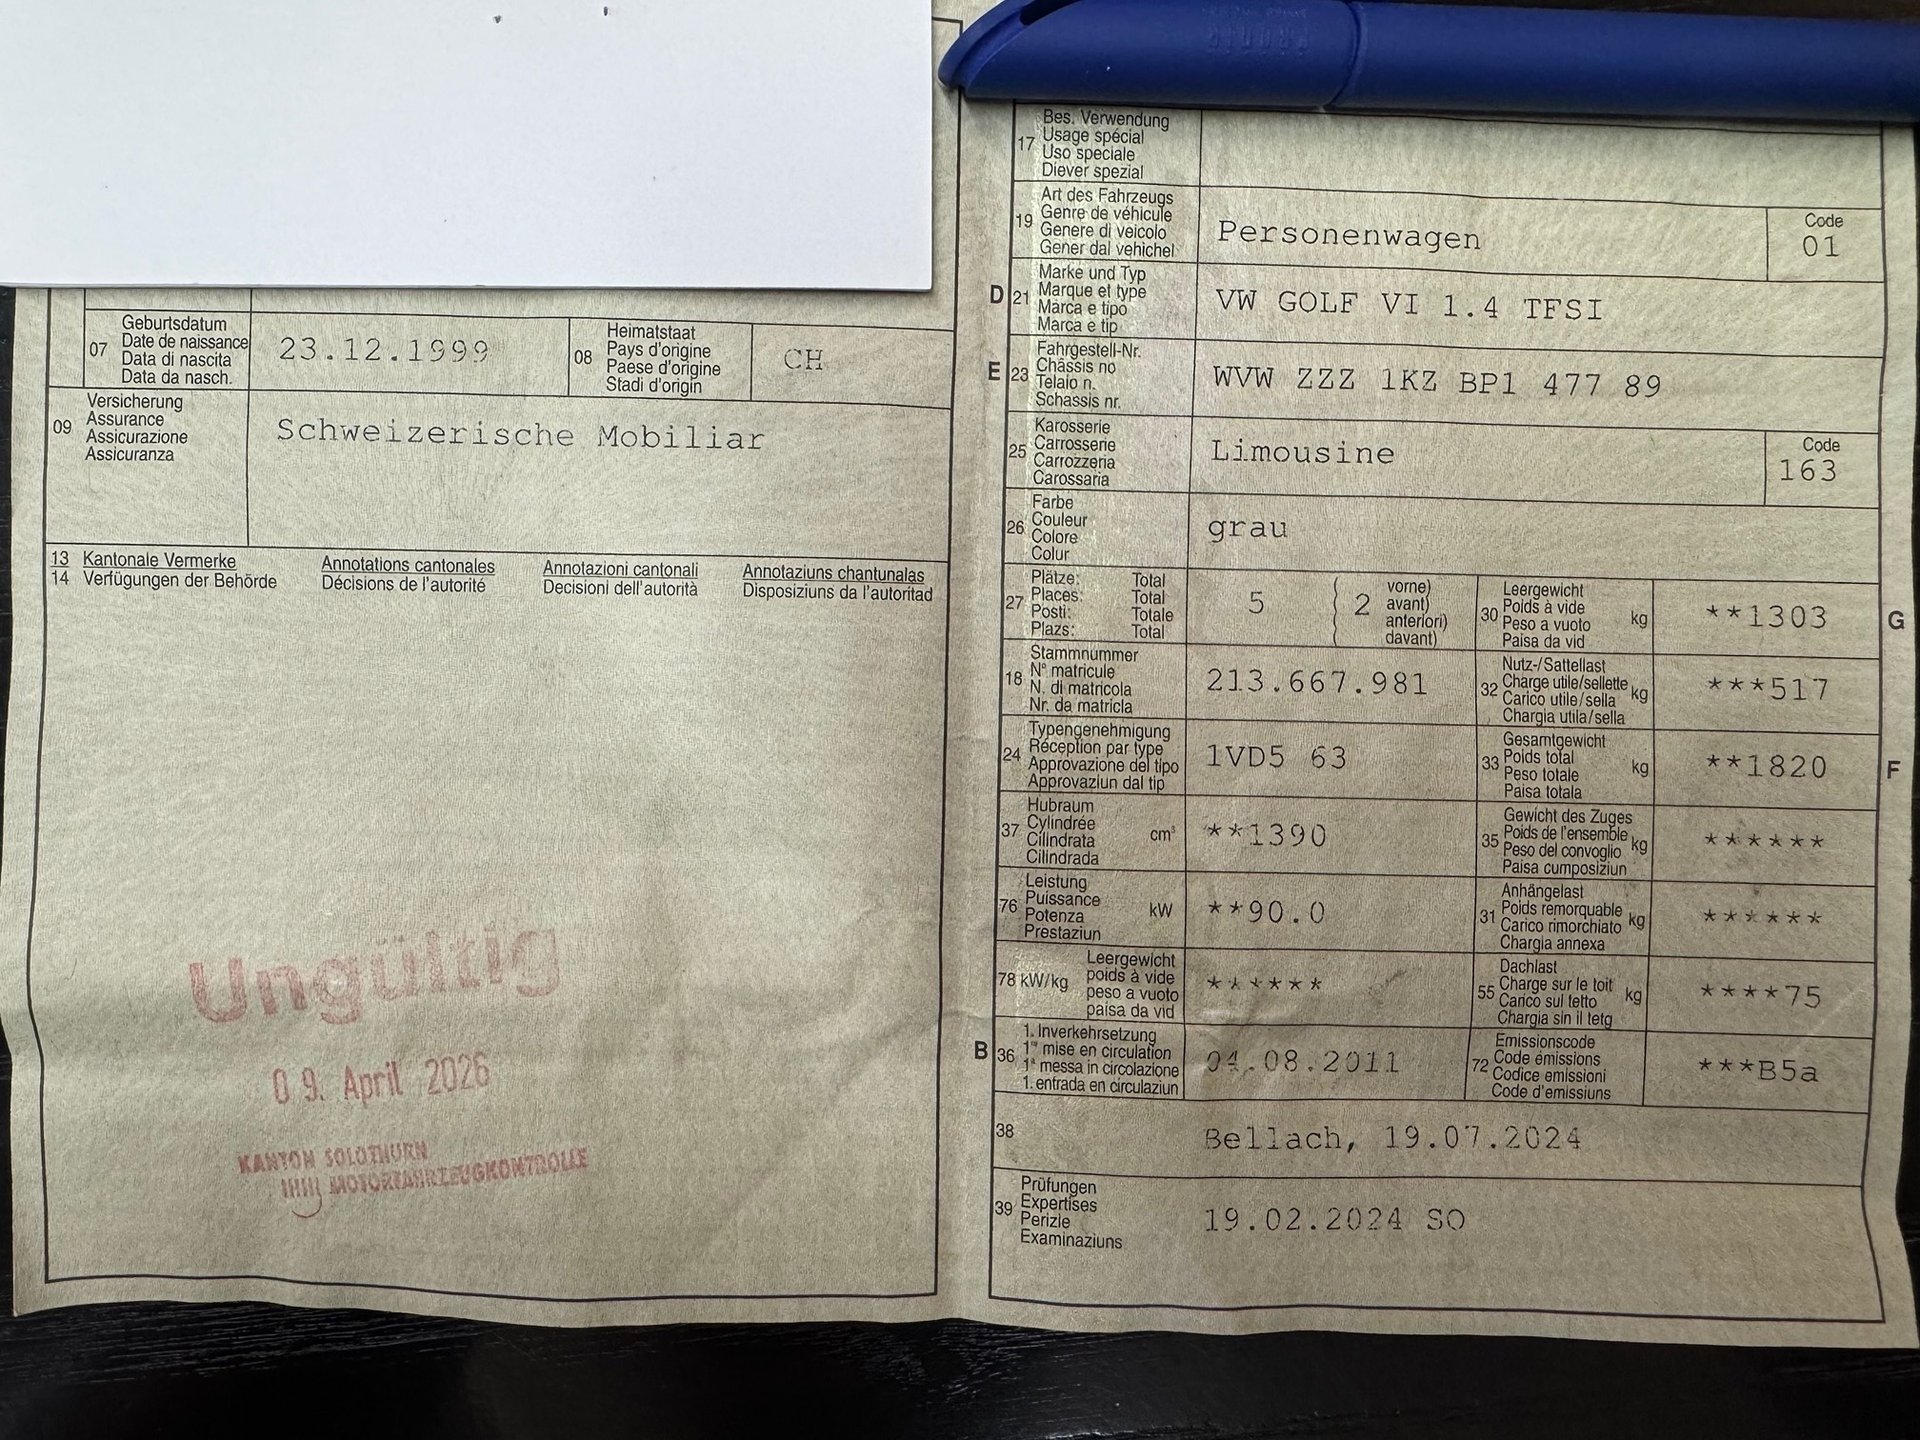 07
Geburtsdatum
Date de naissance
Data di nascita
Data da nasch.
23.12.1999
08
Heimatstaat
Pays d'origine
Paese d'origine
Stadi d'origin
CH
09
Versicherung
Assurance
Assicurazione
Assicuranza
Schweizerische Mobiliar
13 Kantonale Vermerke Annotations cantonales Annotazioni cantonali Annotaziuns chantunalas
14 Verfügungen der Behörde Décisions de l'autorité Decisioni dell'autorità Disposiziuns da l'autoritad
Ungültig
09. April 2026
KANTON SOLOTHURN
MOTORFAHRZEUGKONTROLLE
17
Bes. Verwendung
Usage spécial
Uso speciale
Diever spezial
19
Art des Fahrzeugs
Genre de véhicule
Genere di veicolo
Gener dal vehichel
Personenwagen
Code
01
D 21
Marke und Typ
Marque et type
Marca e tipo
Marca e tip
VW GOLF VI 1.4 TFSI
E 23
Fahrgestell-Nr.
Châssis no
Telaio n.
Schassis nr.
WVW ZZZ 1KZ BP1 477 89
25
Karosserie
Carrosserie
Carrozzeria
Carossaria
Limousine
Code
163
26
Farbe
Couleur
Colore
Colur
grau
27
Plätze: Total
Places: Total
Posti: Totale
Plazs: Total
5
( 2 vorne)
avant)
anteriori)
davant)
30
Leergewicht
Poids à vide
Peso a vuoto
Paisa da vid
kg
**1303
G
18
Stammnummer
N° matricule
N. di matricola
Nr. da matricla
213.667.981
32
Nutz-/Sattellast
Charge utile/sellette
Carico utile/sella
Chargia utila/sella
kg
***517
24
Typengenehmigung
Réception par type
Approvazione del tipo
Approvaziun dal tip
1VD5 63
33
Gesamtgewicht
Poids total
Peso totale
Paisa totala
kg
**1820
F
37
Hubraum
Cylindrée
Cilindrata
Cilindrada
cm³
**1390
35
Gewicht des Zuges
Poids de l'ensemble
Peso del convoglio
Paisa cumposiziun
kg
******
76
Leistung
Puissance
Potenza
Prestaziun
kW
**90.0
31
Anhängelast
Poids remorquable
Carico rimorchiato
Chargia annexa
kg
******
78 kW/kg
Leergewicht
poids à vide
peso a vuoto
paisa da vid
******
55
Dachlast
Charge sur le toit
Carico sul tetto
Chargia sin il tetg
kg
****75
B 36
1. Inverkehrsetzung
1re mise en circulation
1a messa in circolazione
1. entrada en circulaziun
04.08.2011
72
Emissionscode
Code émissions
Codice emissioni
Code d'emissiuns
***B5a
38
Bellach, 19.07.2024
39
Prüfungen
Expertises
Perizie
Examinaziuns
19.02.2024 SO